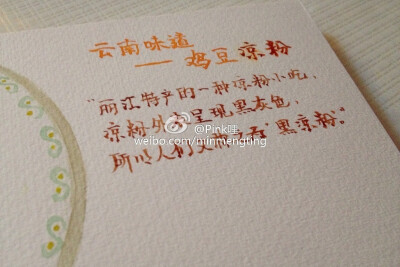 云南味道
—— 鸡豆凉粉
"丽江特产的一种凉粉小吃,
凉粉外观呈现黑灰色,
所以人们又称 "黑凉粉"。
@Pink哇
weibo.com/minmengting